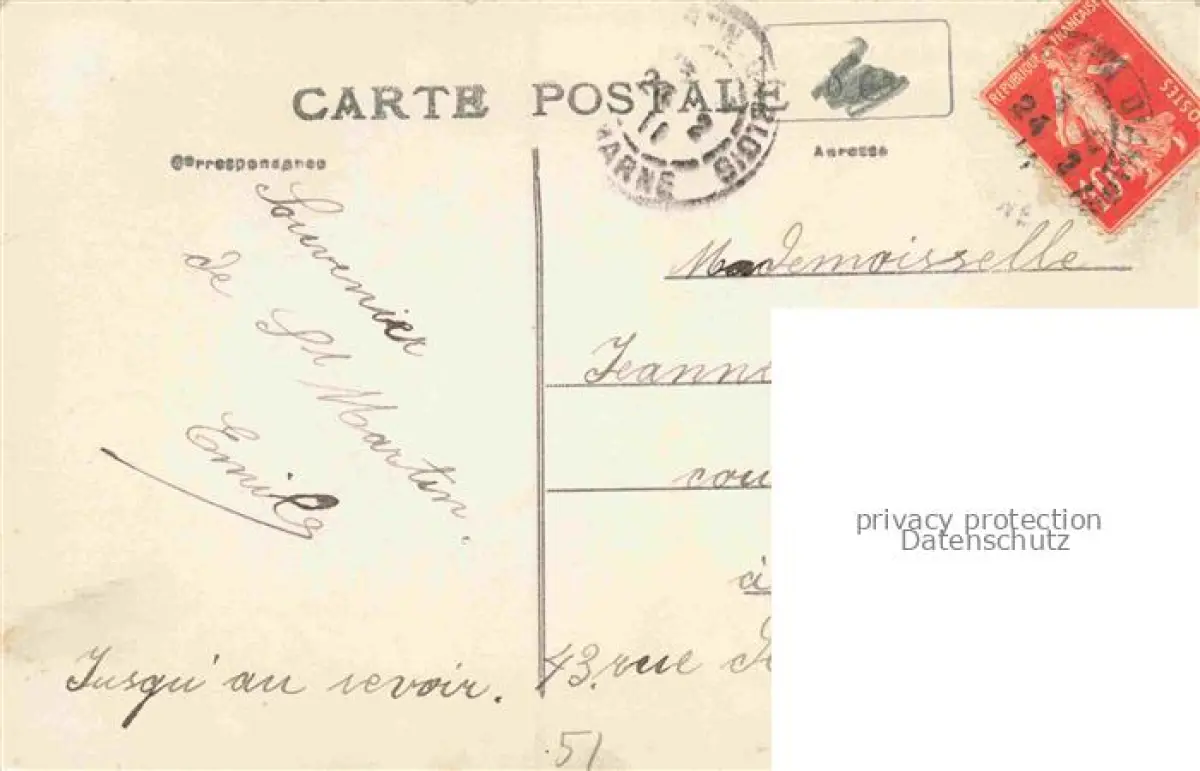 CARTE POSTALE
Correspondance
Adresse
RÉPUBLIQUE FRANÇAISE
POSTES
10
24
MARNE
Souvenir
de
St Martin.
Emile
Jusqu'au revoir.
Mademoisselle
Jeanne
cou
à
43. rue
51
privacy protection
Datenschutz